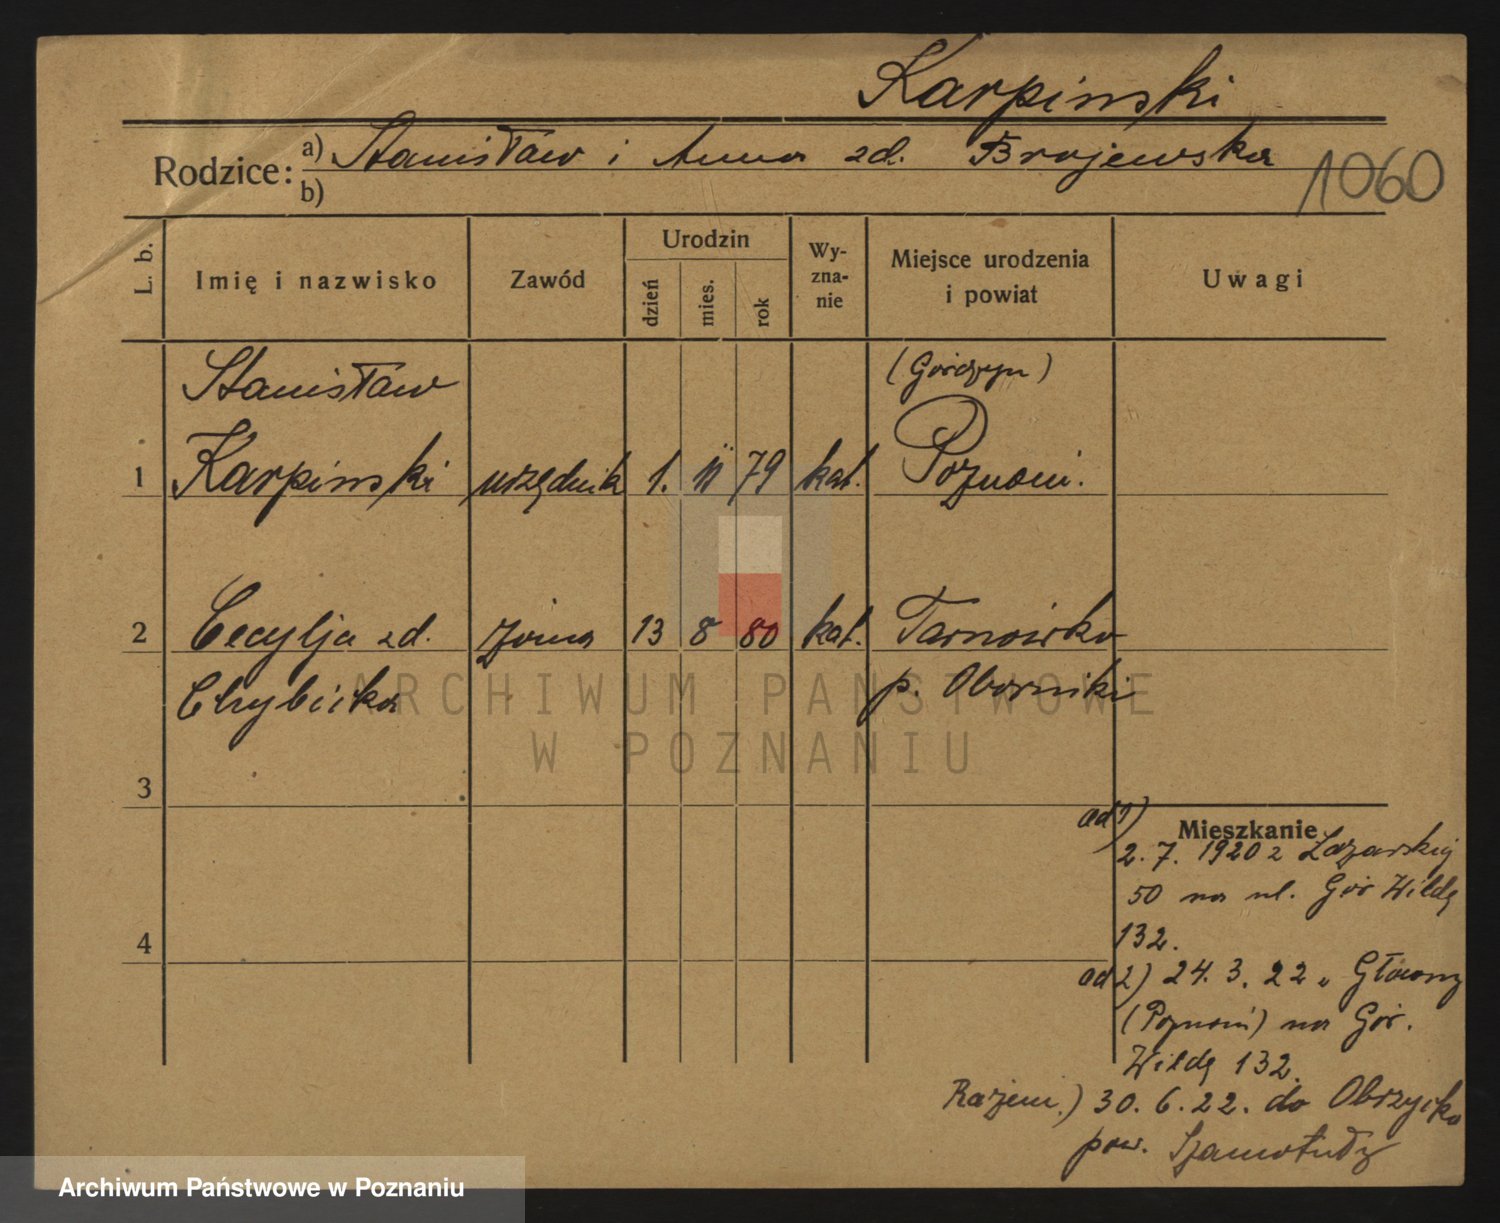 Karpinski
Rodzice: a) Stanisław i Anna zd. Brajewska
b)
1060
L. b.
Imię i nazwisko
Zawód
Urodzin
dzień
mies.
rok
Wy-
zna-
nie
Miejsce urodzenia
i powiat
Uwagi
Stanisław
(Górczyn)
1 Karpinski urzędnik 1. 11 79 kat. Poznań.
2 Cecylja zd. żona 13 8 80 kat. Tarnówko
p. Oborniki
3
4
ad 1)
Mieszkanie
2. 7. 1920 z Łazarskiej
50 na ul. Gór Wildę
132.
ad 2) 24. 3. 22 Główny
(Poznań) na Gór.
Wildę 132.
Razem.) 30. 6. 22. do Obrzycko
pow. Szamotuły
ARCHIWUM PAŃSTWOWE
W POZNANIU
Archiwum Państwowe w Poznaniu